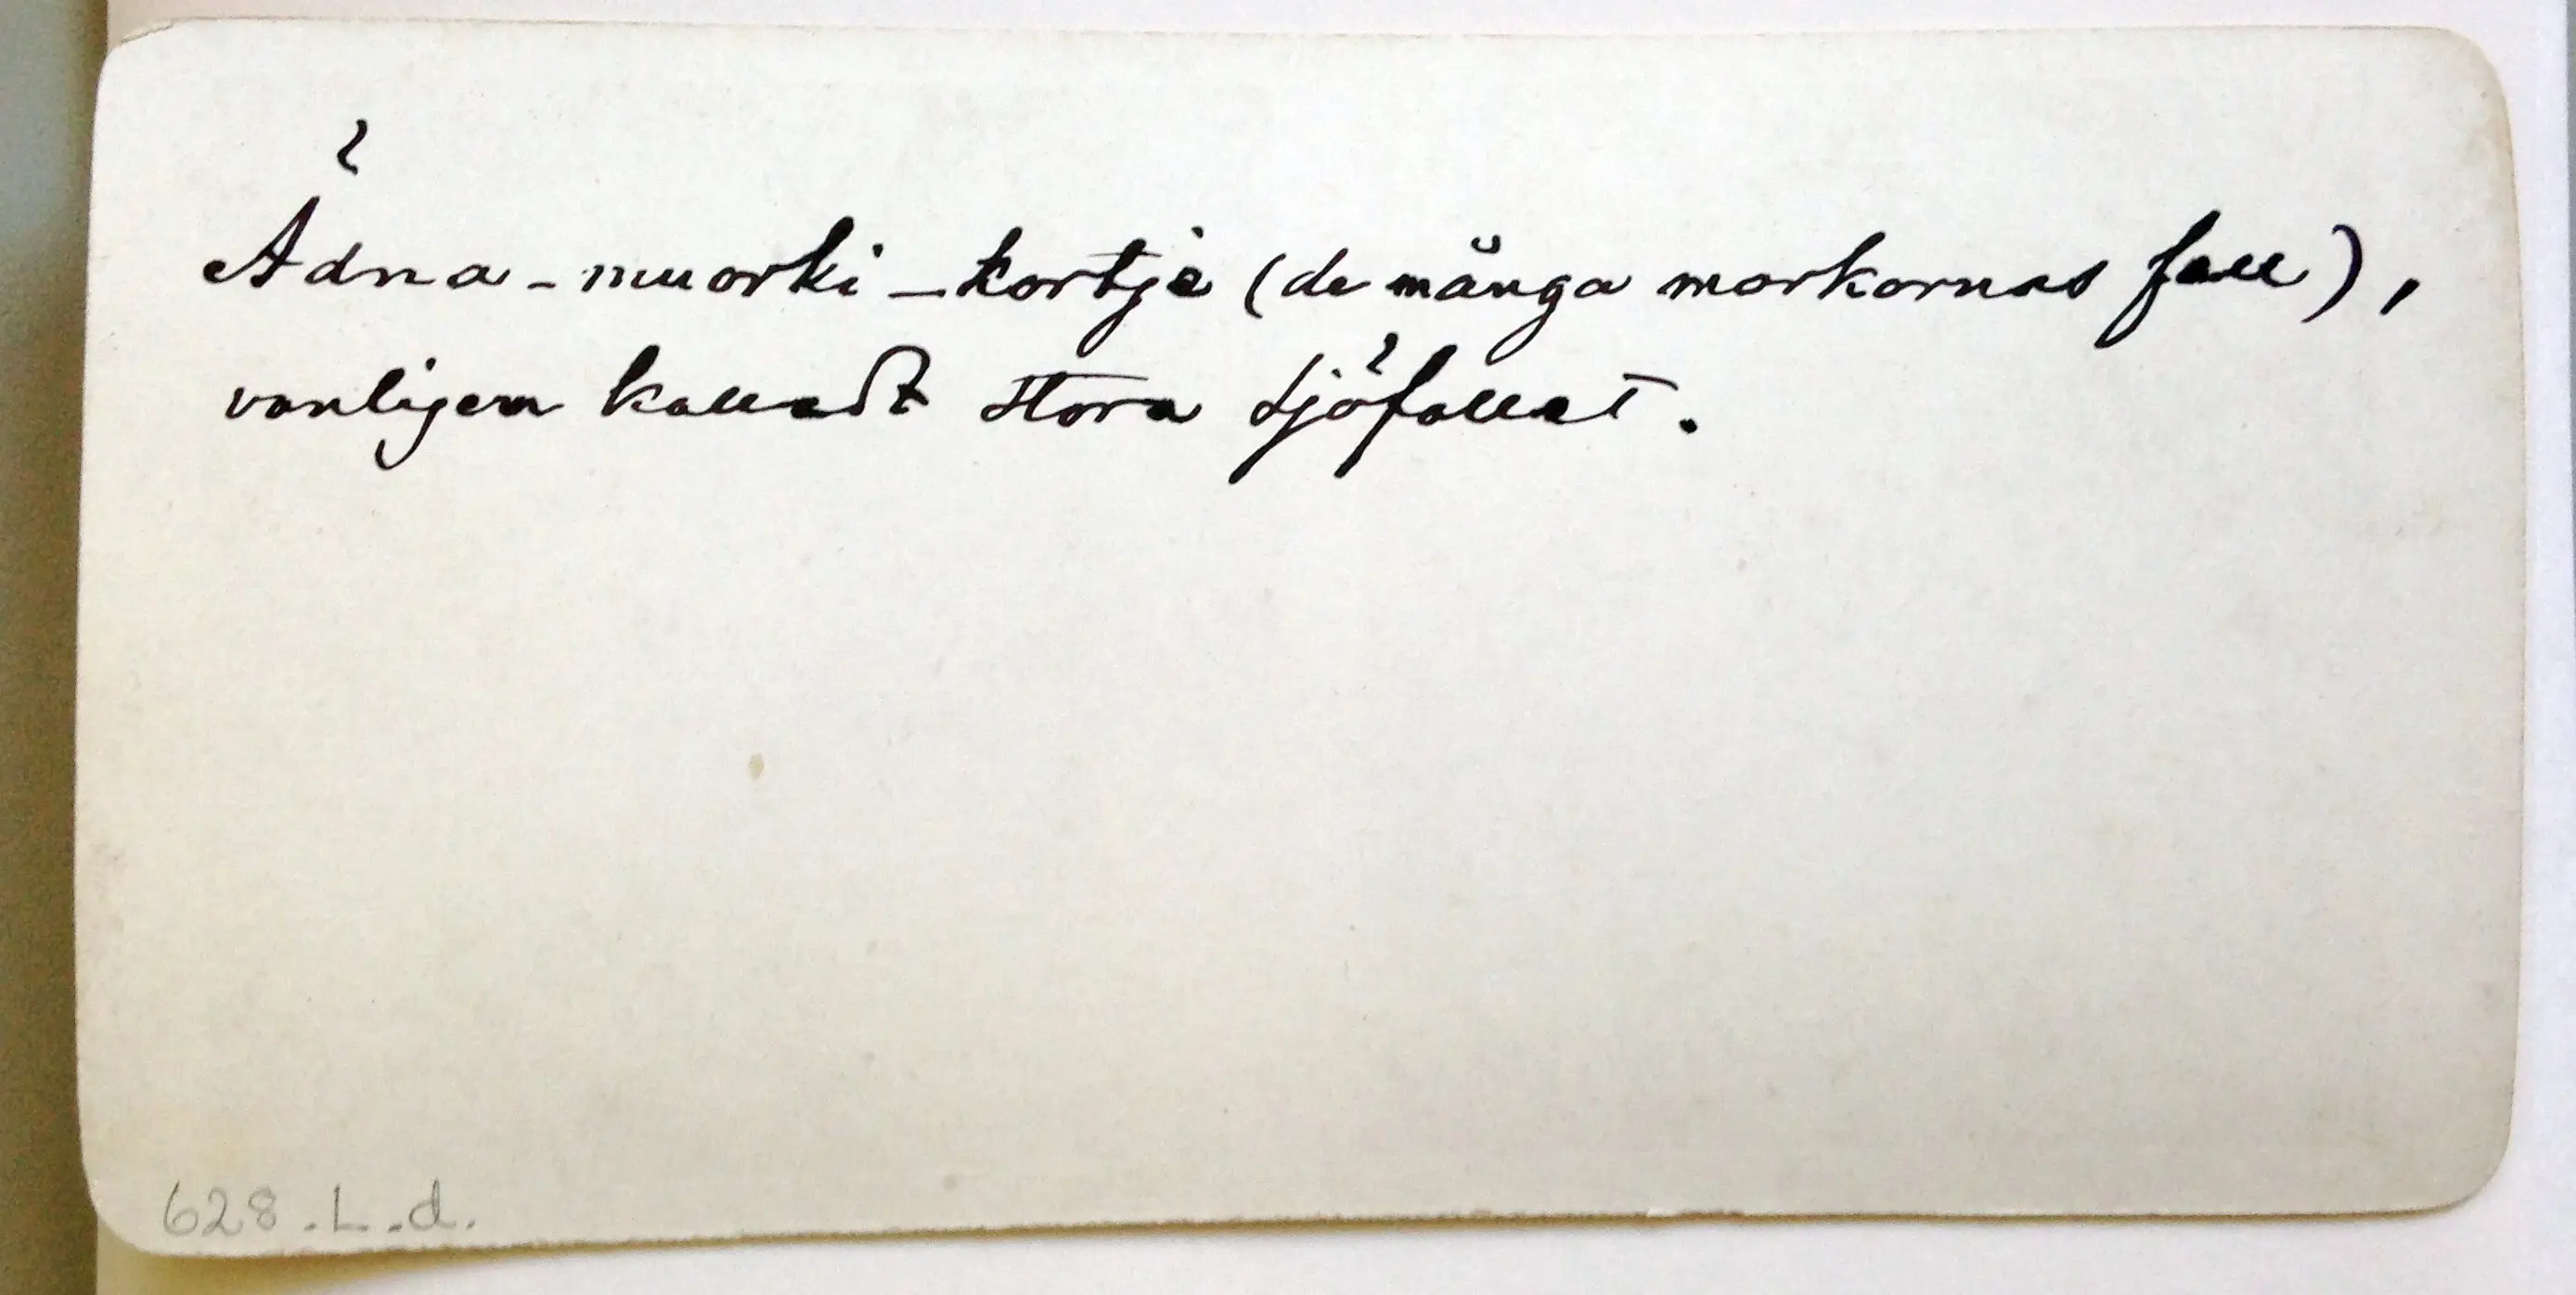 Ädna-muorki-kortje (de många morkornas fall),
vanligen kalladt stora sjöfallet.
628.L.d.